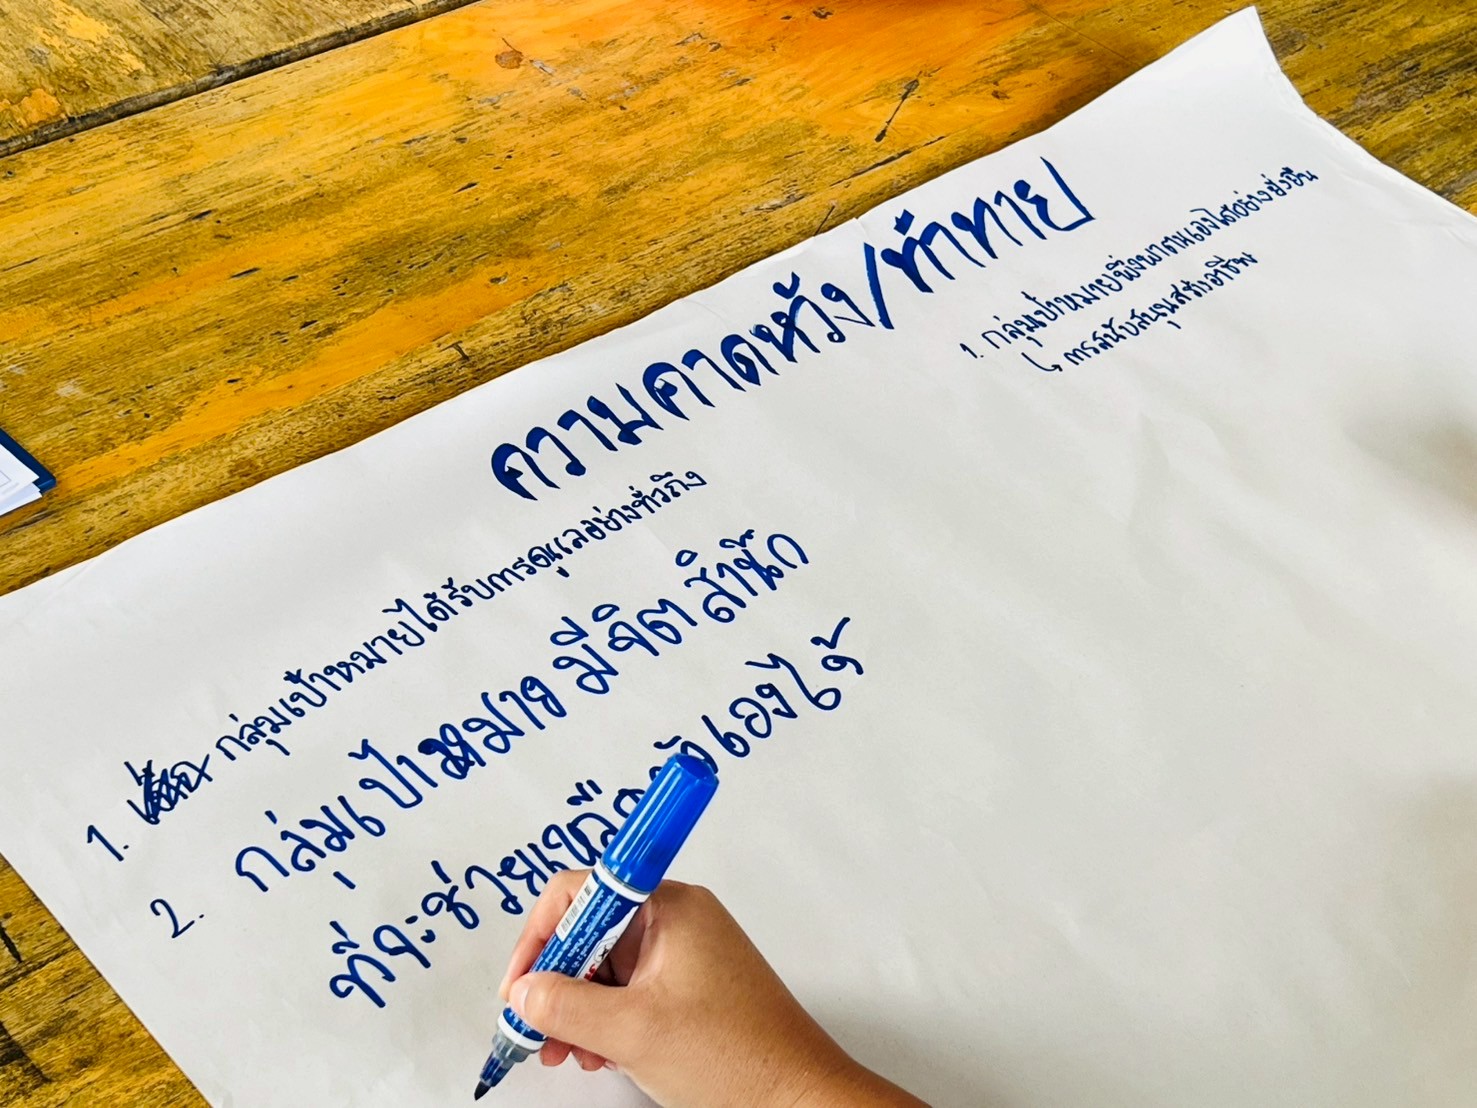 ความคาดหวัง/ท้าทาย
1. กลุ่มเป้าหมายได้รับการดูแลอย่างทั่วถึง
2. กลุ่มเป้าหมาย มีจิตสำนึก
ที่จะช่วยเหลือตัวเองได้
1. กลุ่มเป้าหมายพึ่งพาตนเองได้อย่างยั่งยืน
↳ การสนับสนุนสร้างอาชีพ